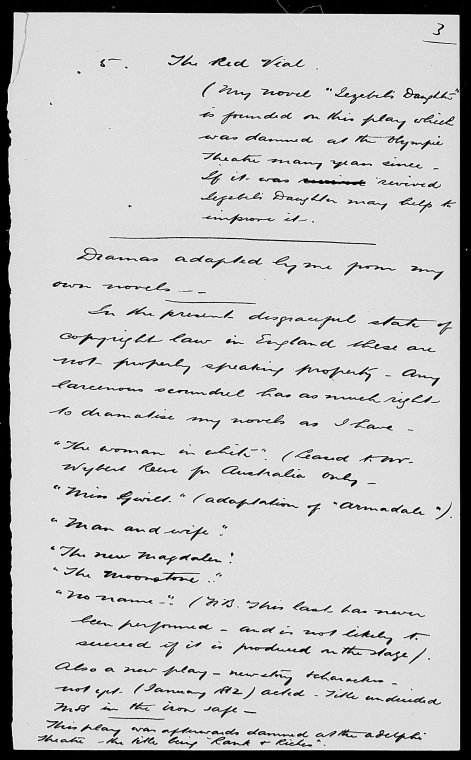 3
5. The Red Vial.
(My novel "Jezebel's Daughter"
is founded on this play which
was damned at the Olympic
Theatre many years since -
If it was revived
Jezebel's Daughter may help to
improve it -.
Dramas adapted by me from my
own novels - -
In the present disgraceful state of
copyright law in England these are
not properly speaking property - Any
larcenous scoundrel has as much right
to dramatise my novels as I have -
"The woman in white". (Leased to Mr.
Wybert Reeve for Australia only -
"Miss Gwilt." (adaptation of "Armadale").
"Man and wife".
"The new Magdalen".
"The Moonstone."
"No name -". (N.B. This last has never
been performed - and is not likely to
succeed if it is produced on the stage).
Also a new play - new story & characters -
not yet (January 1882) acted - Title undecided
MSS in the iron safe -
This play was afterwards damned at the Adelphi
Theatre - the title being "Rank & Riches".